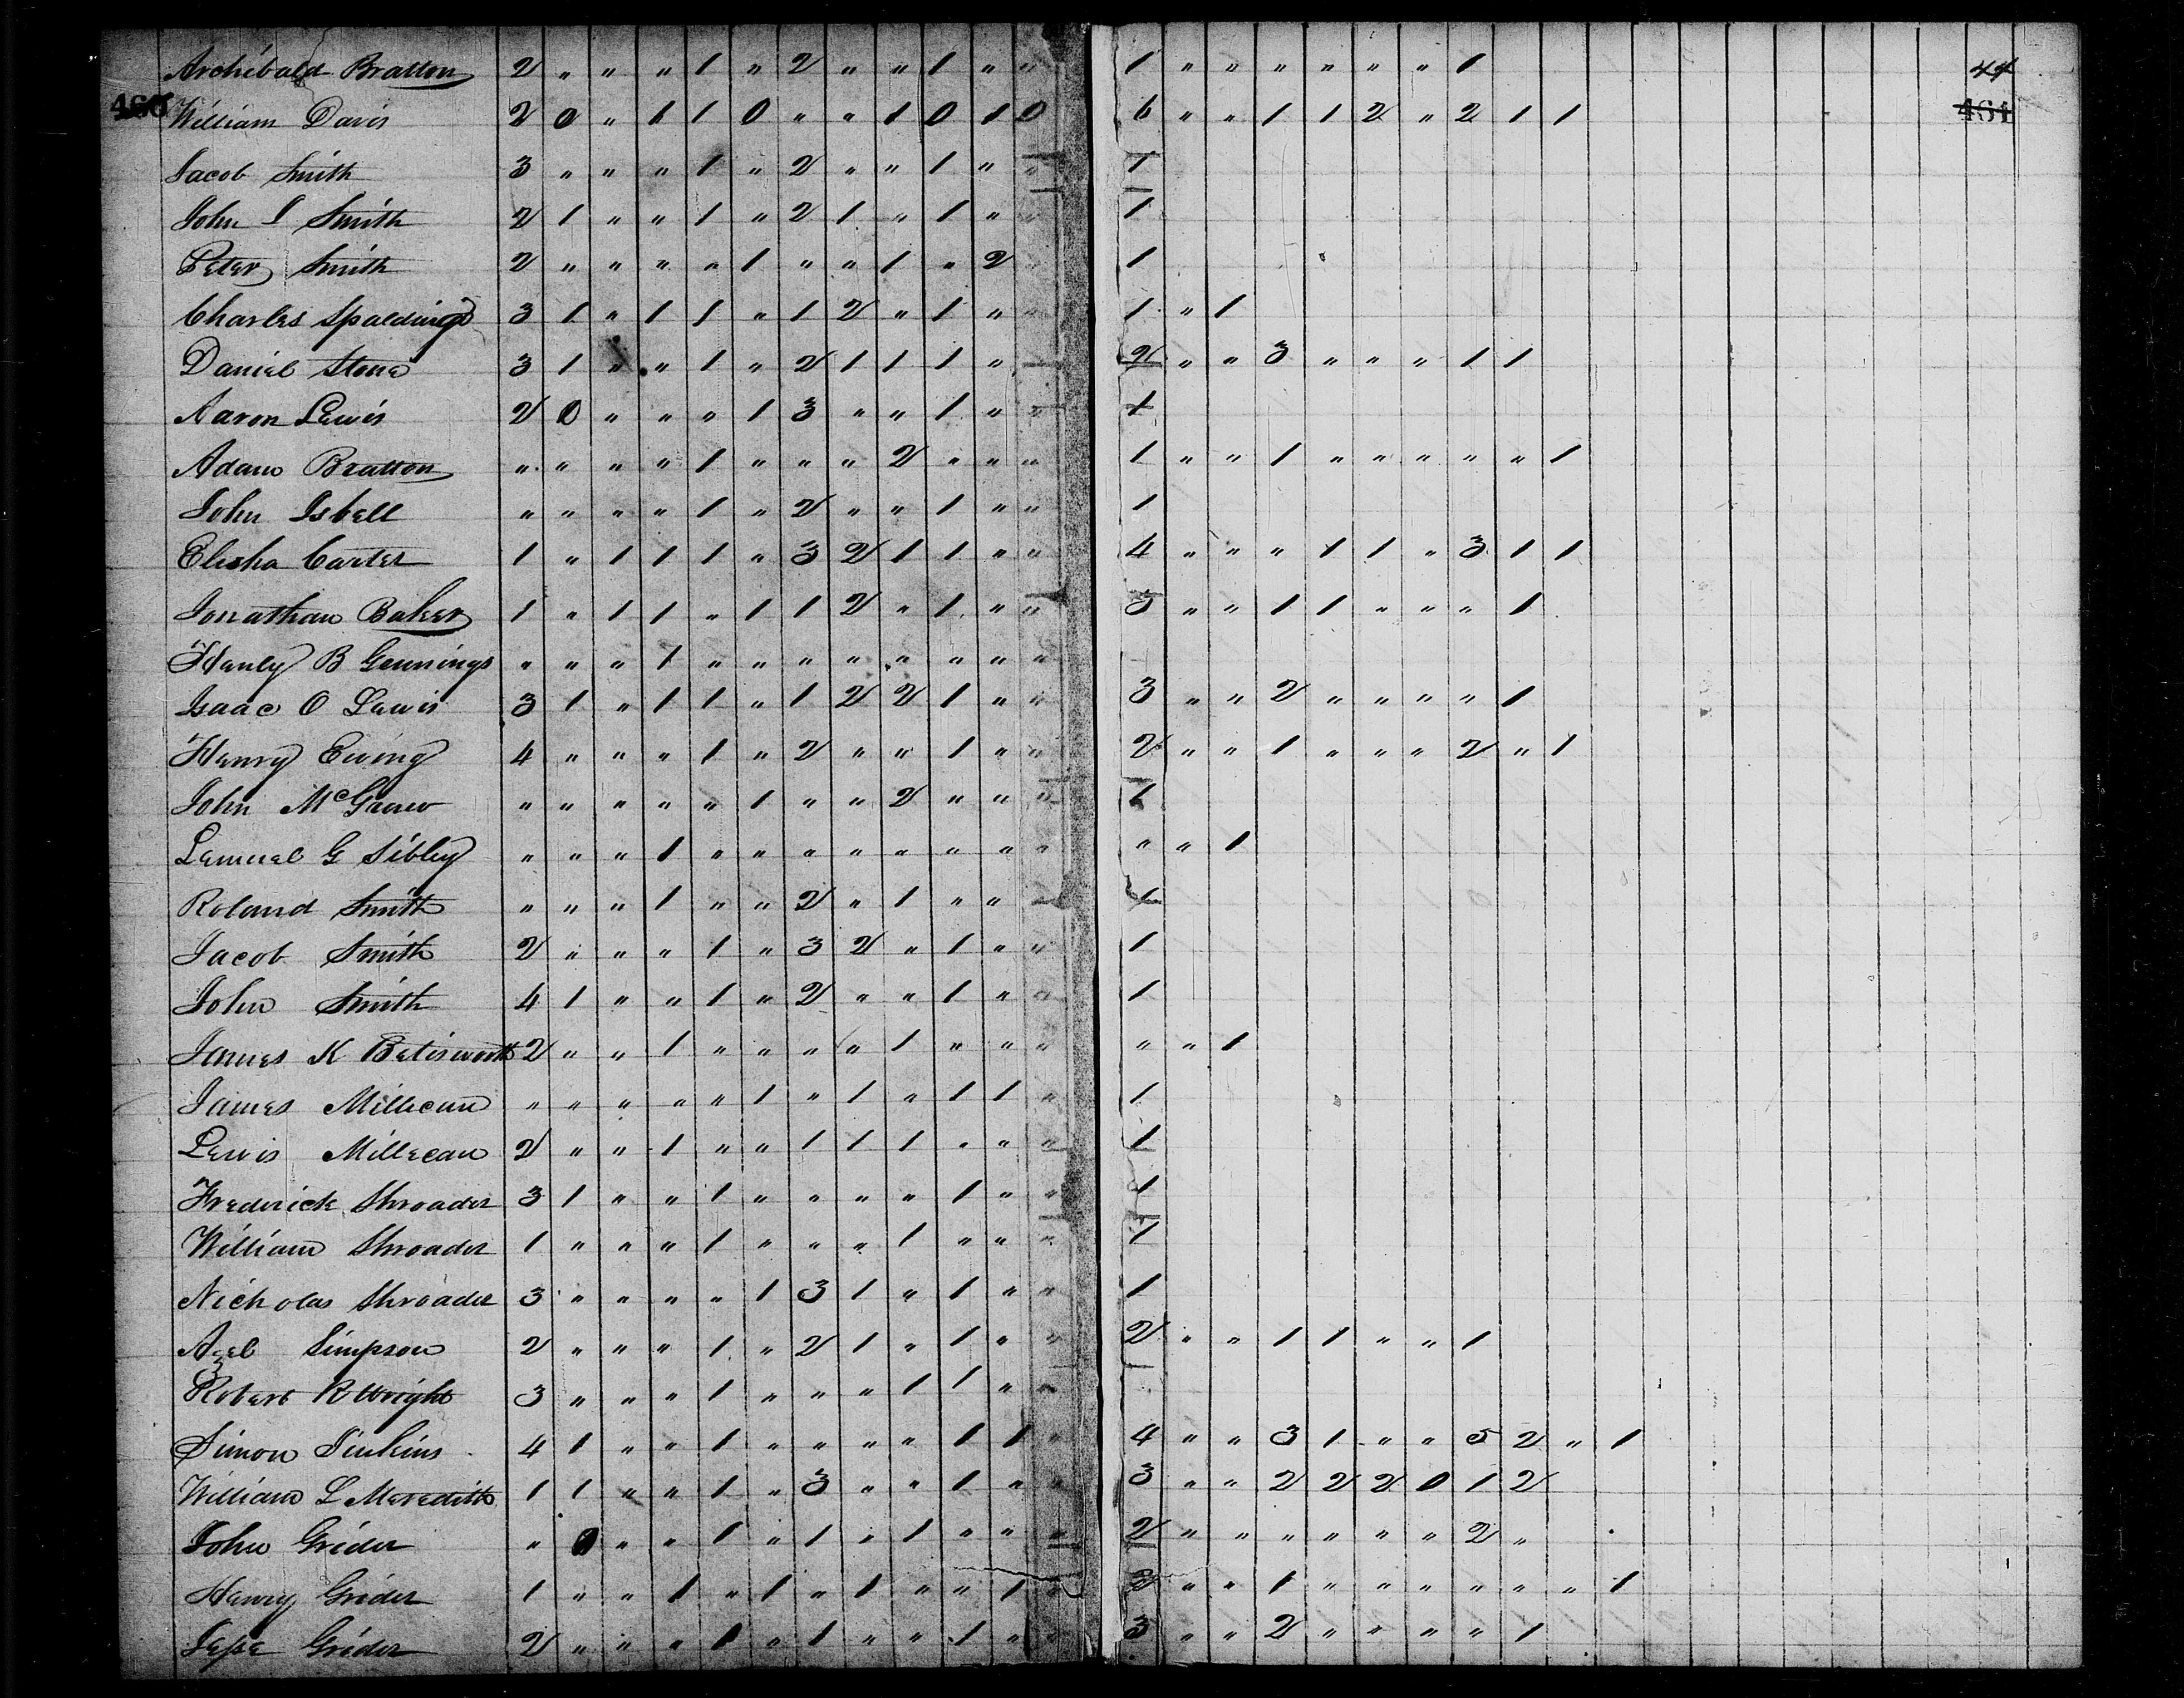 Archibald Bratton 2 " " " 1 " 2 " " 1 " " 1 " " " " " " 1 44
460 William Davis 2 0 " 1 1 0 " " 1 0 1 0 6 " " 1 1 2 " 2 1 1 461
Jacob Smith 3 " " " 1 " 2 " " 1 " " 1
John I Smith 2 1 " " 1 " 2 1 " 1 " " 1
Peter Smith 2 " " " " 1 " " 1 " 2 " 1
Charles Spalding 3 1 " 1 1 " 1 2 " 1 " " 1 " 1
Daniel Stone 3 1 " " 1 " 2 1 1 1 " 2 " " 3 " " " 1 1
Aaron Lewis 2 0 " " " 1 3 " " 1 " " 1
Adam Bratton " " " " 1 " " " 2 " " " 1 " " 1 " " " " " 1
John Isbell " " " " 1 " 2 " " 1 " " 1
Elisha Carter 1 " 1 1 1 " 3 2 1 1 " " 4 " " " 1 1 " 3 1 1
Jonathan Baker 1 " 1 1 " 1 1 2 " 1 " " 3 " " 1 1 " " " 1
Henly B Gennings " " " 1 " " " " " " " "
Isaac O Lewis 3 1 " 1 1 " 1 2 2 1 " " 3 " " 2 " " " " 1
Henry Ewing 4 " " " 1 " 2 " " 1 " " 2 " " 1 " " " 2 " 1
John " " " " " 1 " " 2 " " " 1
Lemuel G Sibley " " " 1 " " " " " " " " " " 1
Roland Smith " " " 1 " " 2 " 1 " " 1
Jacob Smith 2 " " " 1 " 3 2 " 1 " " 1
John Smith 4 1 " " 1 " 2 " " 1 " " 1
James K Betisworth 2 " " 1 " " " " 1 " " " " " 1
James Millican " " " " " 1 " 1 " 1 1 " 1
Lewis Millican 2 " " 1 " " 1 1 1 " " " 1
Frederick Shroader 3 1 " " 1 " " " " 1 " " 1
William Shroader 1 " " " 1 " " " 1 " " " 1
Nicholas Shroader 3 " " " " 1 3 1 " 1 " " 1
Simpson 2 " " " 1 " 2 1 " 1 " " 2 " " 1 1 " " 1
Robert R Wright 3 " " " 1 " " " 1 1 " "
Simon Jinkins 4 1 " " 1 " " " " 1 1 " 4 " " 3 1 " " 5 2 " 1
William L Meredith 1 1 " " 1 " 3 " " 1 " " 3 " " 2 2 2 0 1 2
John Grider " 0 " " 1 " 1 " 1 " " " 2 " " " " " " 2 "
Henry Grider 1 " " 1 " 1 " 1 " " 1 " 2 " " 1 " " " " " " 1
Jesse Grider 2 " " " 1 " 1 " " 1 " " 3 " " 2 " " " " 1